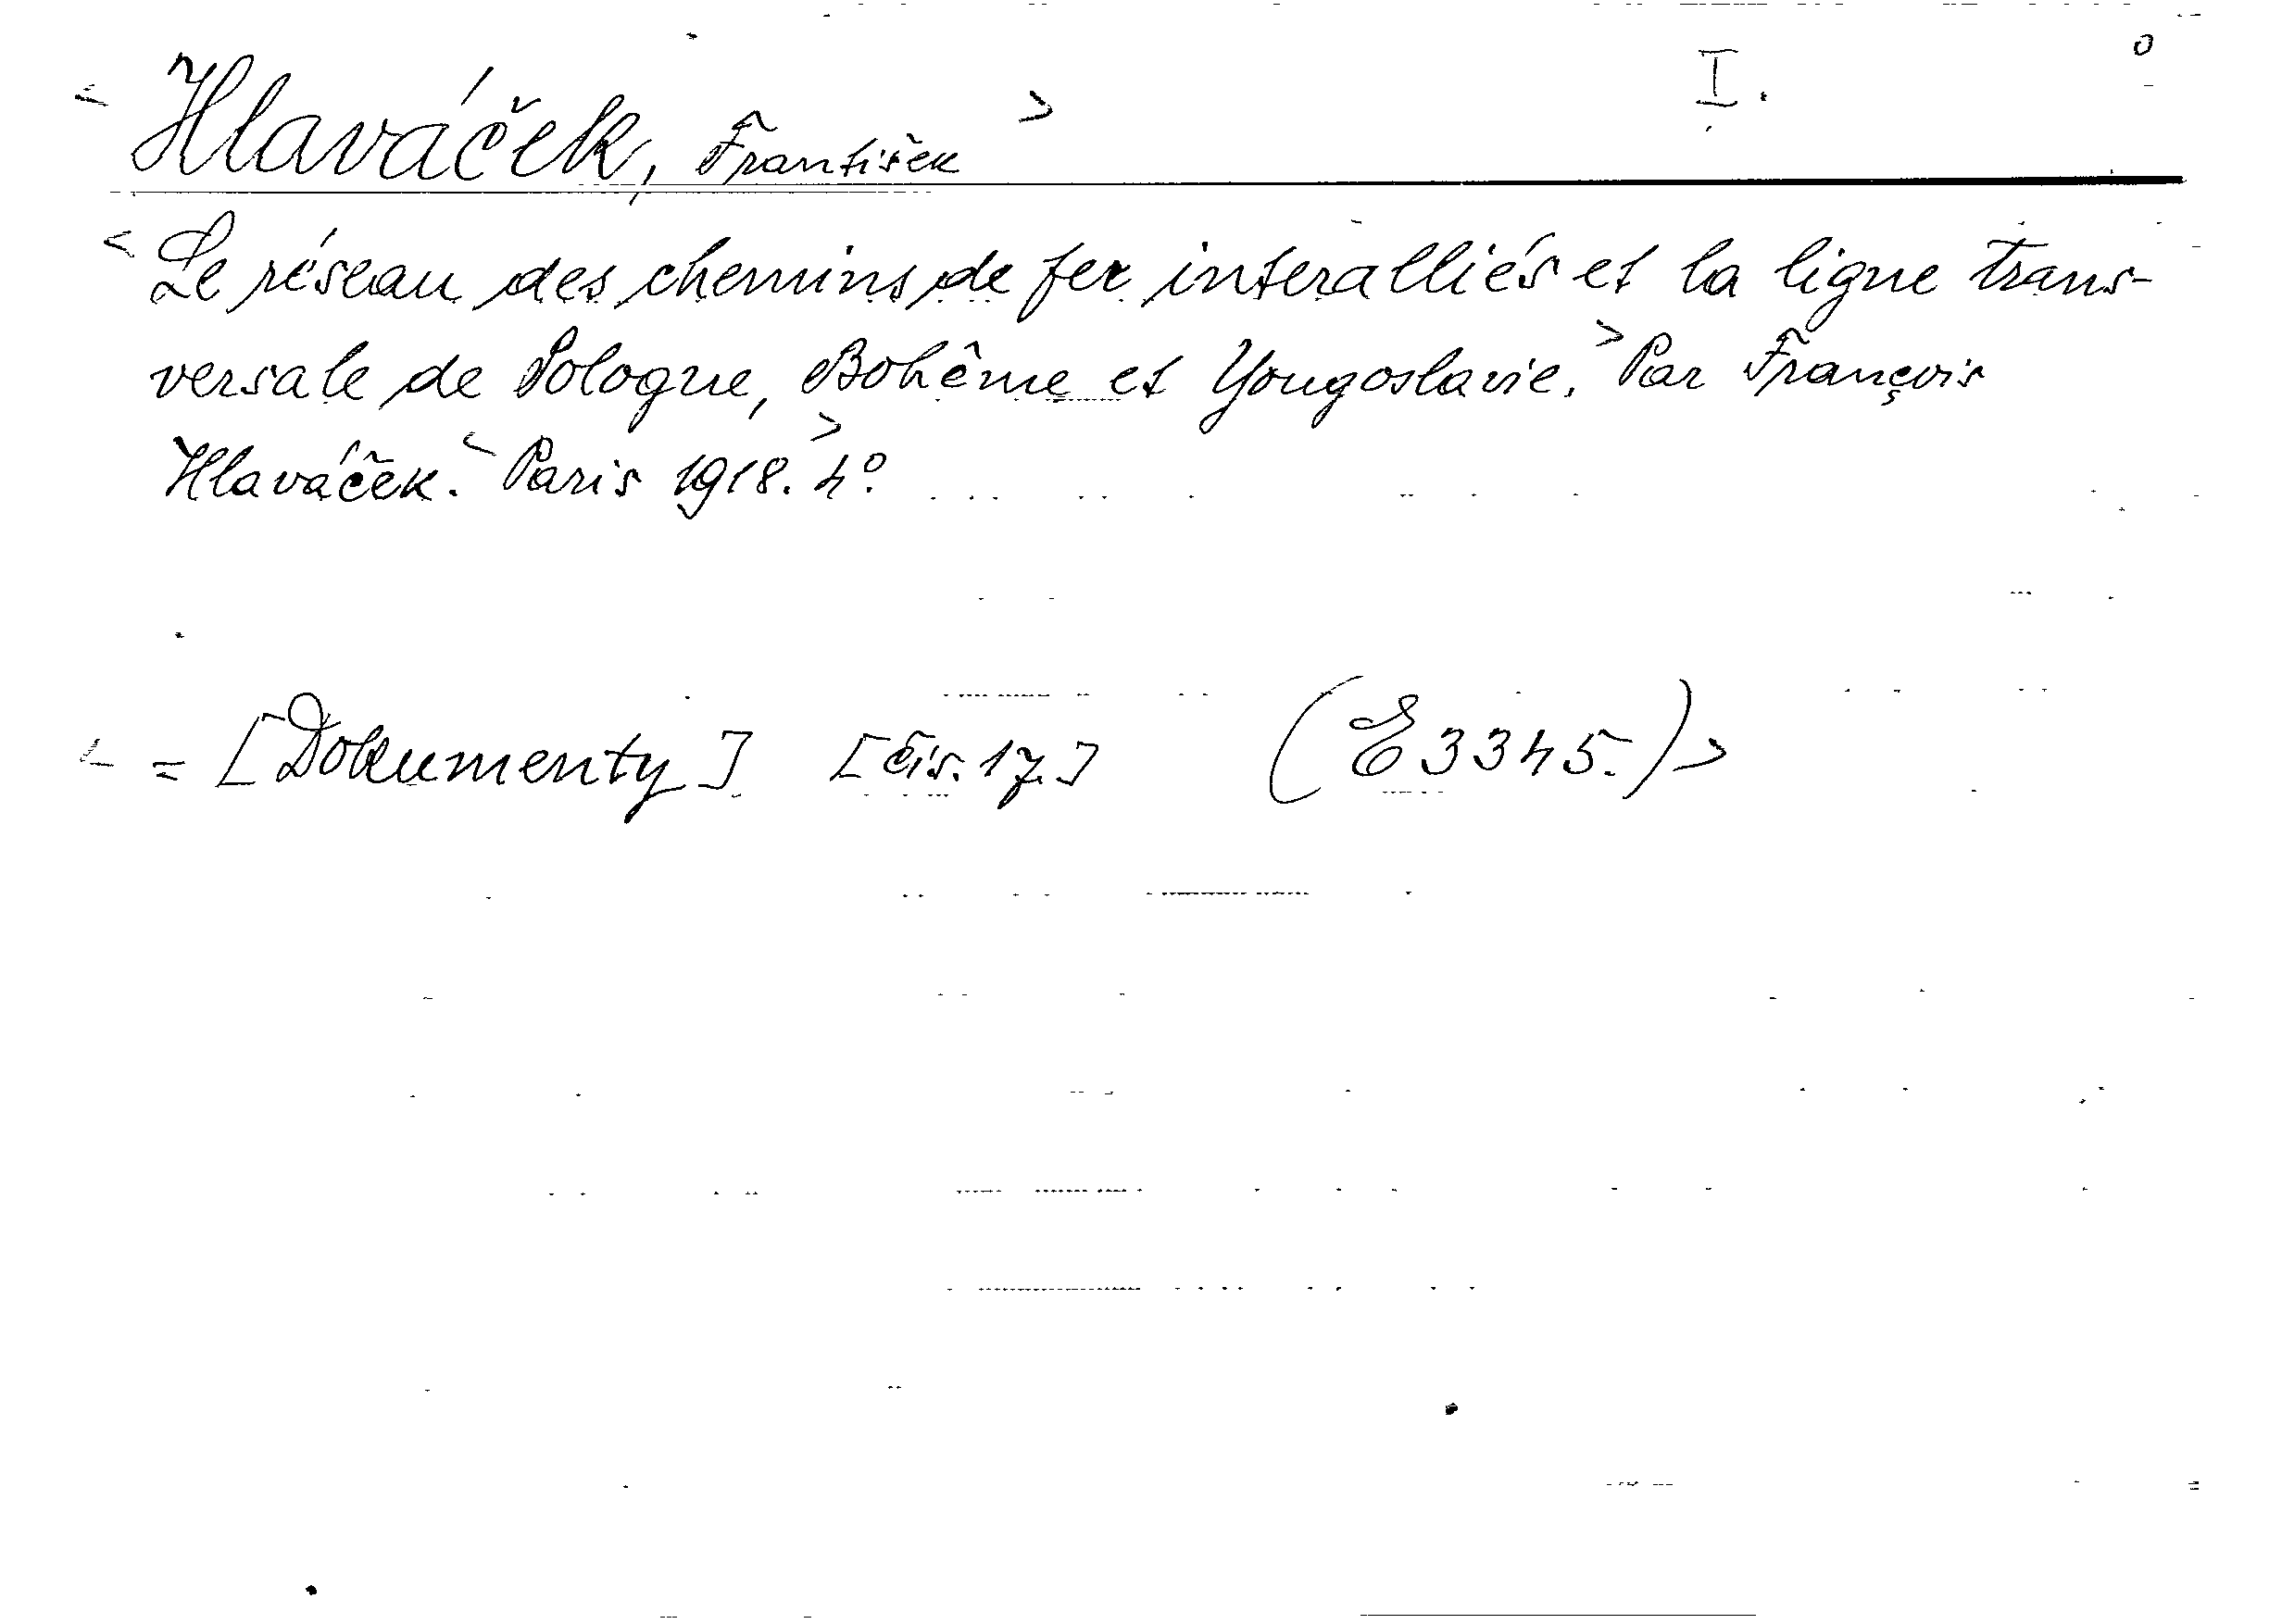 < Hlaváček, František > I. o
< Le réseau des chemins de fer interalliés et la ligne trans-
versale de Pologne, Bohême et Yougoslavie. > Par François
Hlaváček. < Paris 1918. > 4°.
< = [Dokumenty] [čís. 17.] (E 3345.) >